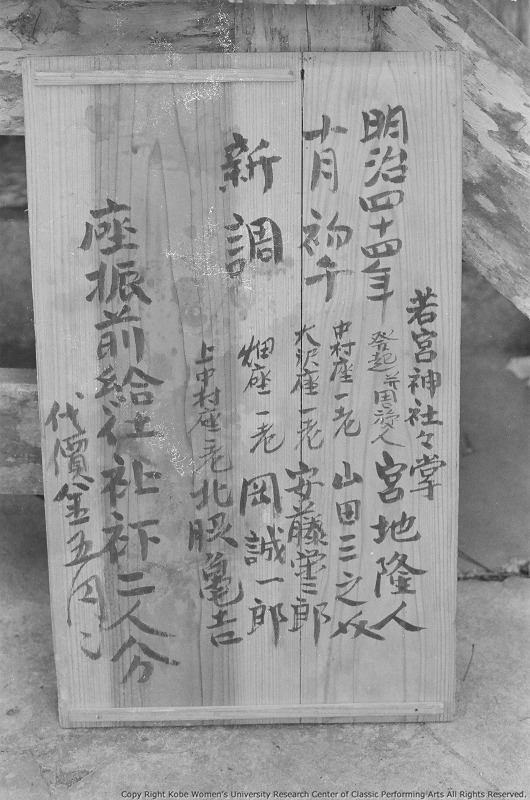 明治四十四年
十月初午
新調
若宮神社々掌
発起并周旋人
宮地隆人
中村座一老 山田三之奴
大沢座一老 安藤栄三郎
畑座一老 岡誠一郎
上中村座一老 北脇亀吉
座振前給仕裃二人分
代價金五円
Copy Right Kobe Women's University Research Center of Classic Performing Arts All Rights Reserved.